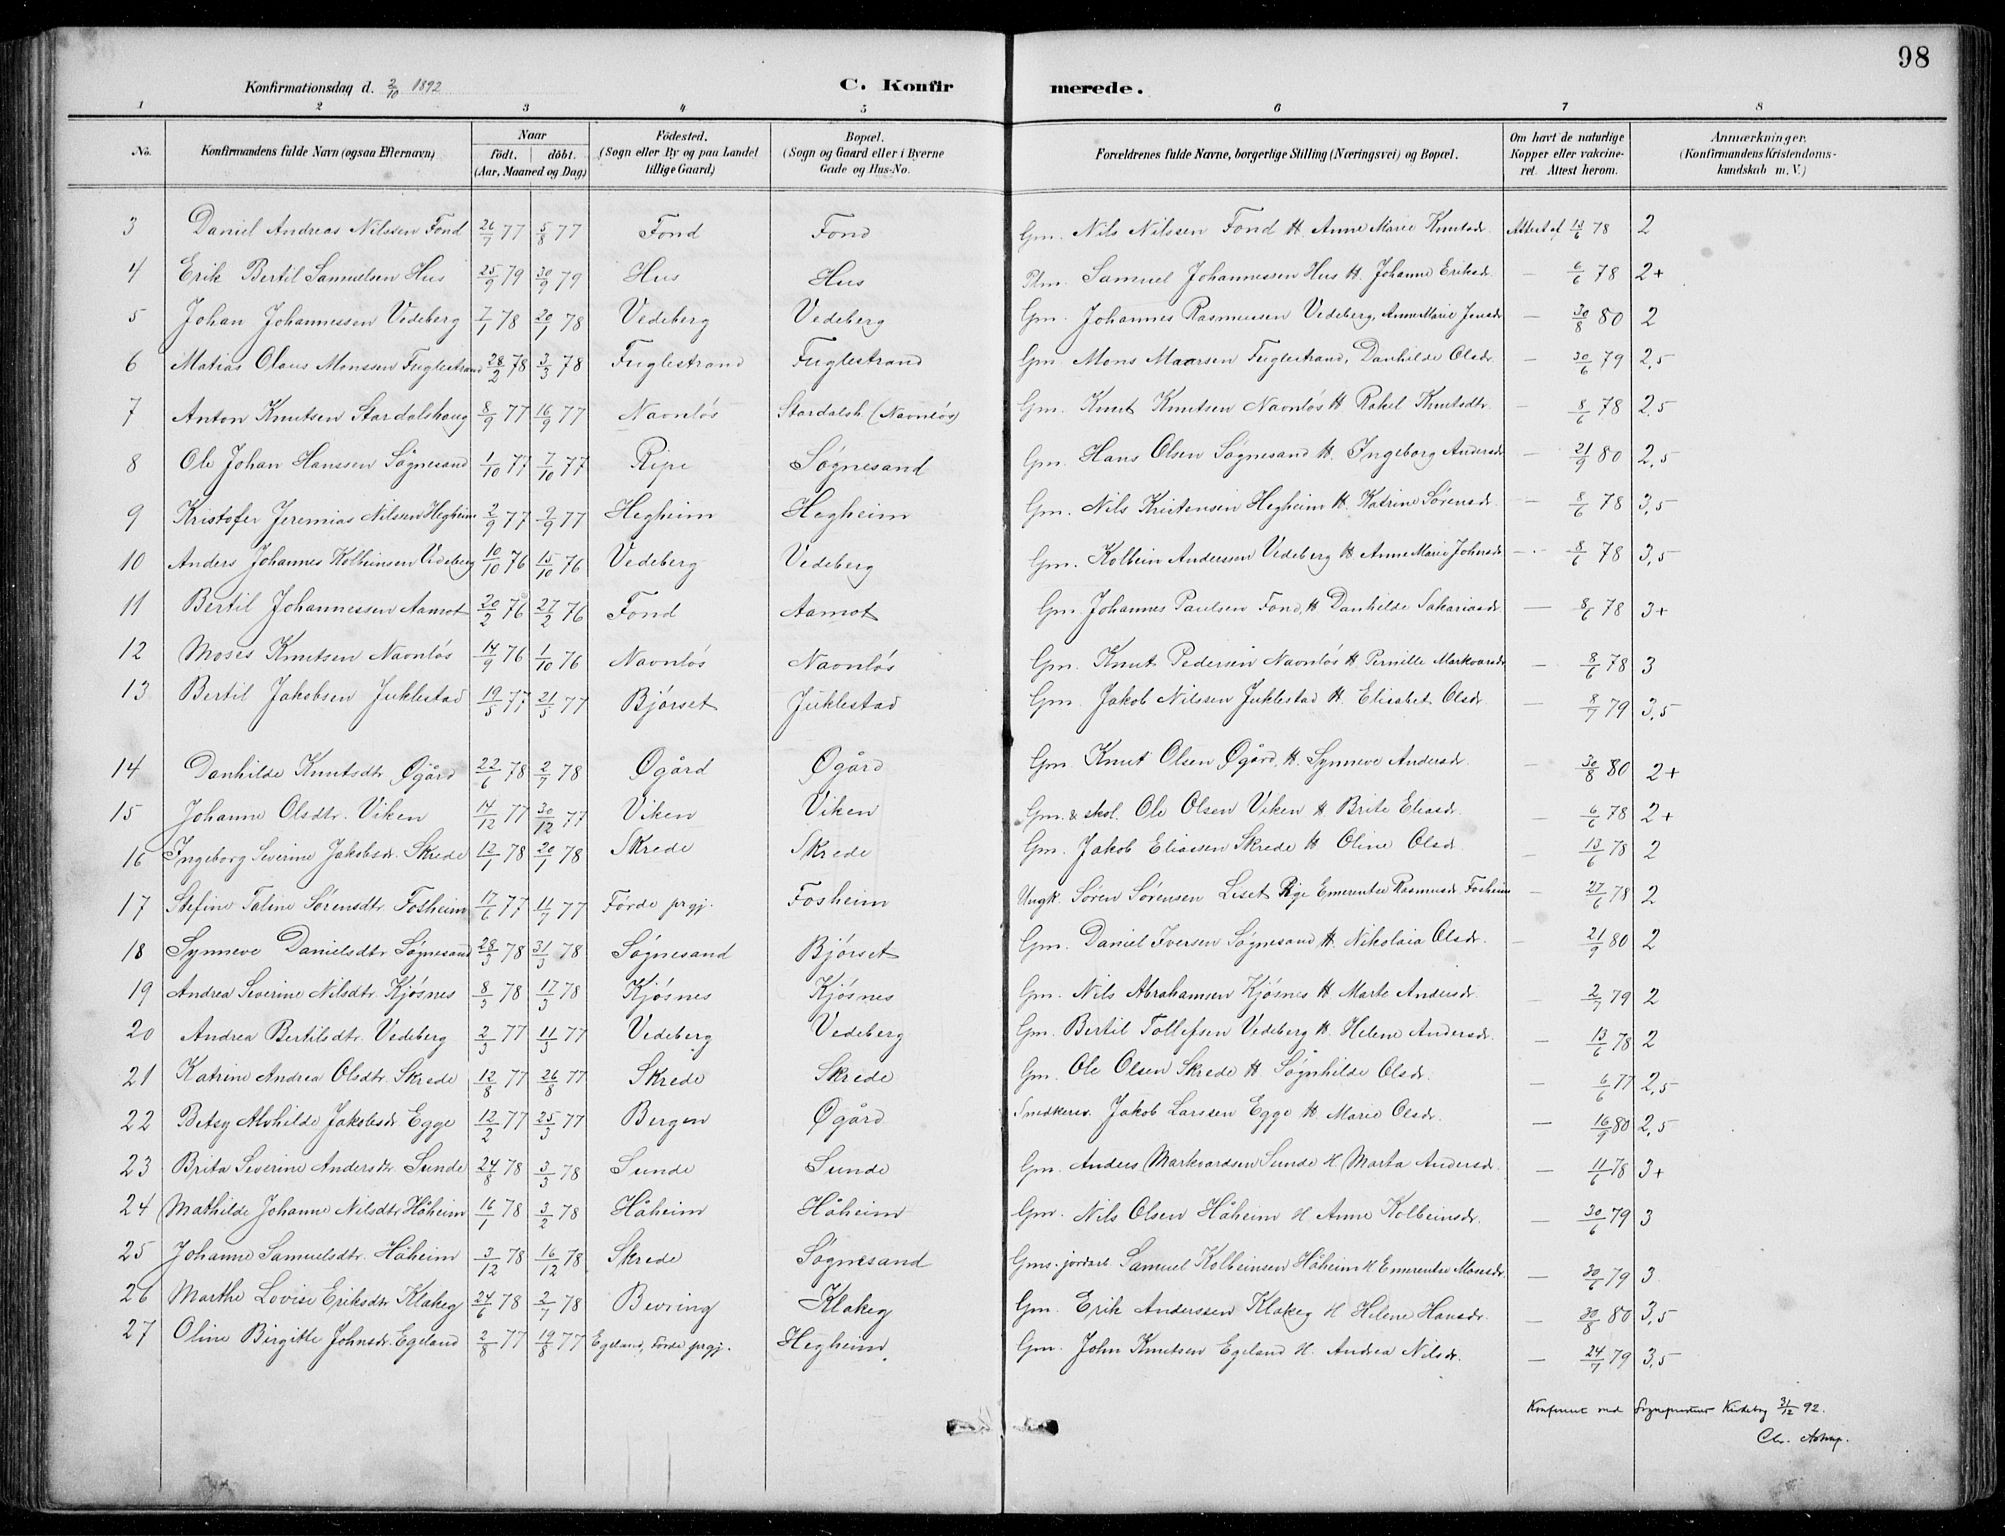 98
Konfirmationsdag d. 2/10 1892 C. Konfirmerede.
1 2 3 4 5 6 7 8
No. Konfirmandens fulde Navn (ogsaa Efternavn) Naar födt. döbt. (Aar, Maaned og Dag) Födested. (Sogn eller By og paa Landet tillige Gaard) Bopæl. (Sogn og Gaard eller i Byerne Gade og Hus-No. Forældrenes fulde Navne, borgerlige Stilling (Næringsvei) og Bopæl. Om havt de naturlige Kopper eller vakcineret. Attest herom. Anmærkninger. (Konfirmandens Kristendomskundskab m. V.)
3 Daniel Andreas Nilssen Fond 26/7 77 5/8 77 Fond Fond Gm. Nils Nilssen Fond H. Anne Marie Knutsdr. Attest af 13/6 78 2
4 Erik Bertil Samuelsen Hus 25/9 79 30/9 79 Hus Hus Plm. Samuel Johannessen Hus H. Johanne Eriksdr. — 6/6 78 2+
5 Johan Johannessen Vedeberg 7/1 78 20/1 78 Vedeberg Vedeberg Gm. Johannes Rasmussen Vedeberg, Anne Marie Jensdr — 30/8 80 2
6 Matias Olaus Monssen Fuglestrand 28/2 78 3/3 78 Fuglestrand Fuglestrand Gm. Mons Maarsen Fuglestrand, Danhilde Olsdr. — 30/6 79 2,5
7 Anton Knutsen Stardalshaug 8/9 77 16/9 77 Navnløs Stardalsh. (Navnløs) Gm. Knut Knutsen Navnløs H. Rakel Knutsdtr. — 8/6 78 2,5
8 Ole Johan Hanssen Søgnesand 1/10 77 7/10 77 Ripe Søgnesand Gm. Hans Olsen Søgnesand H. Ingeborg Andersdr — 21/9 80 2,5
9 Kristofer Jeremias Nilssen Hegheim 2/9 77 9/9 77 Hegheim Hegheim Gm. Nils Kristensen Hegheim H. Katrine Sørensdr. — 8/6 78 3,5
10 Anders Johannes Kolbeinsen Vedeberg 10/10 76 15/10 76 Vedeberg Vedeberg Gm. Kolbein Andersen Vedeberg H. Anne Marie Johnsdr — 8/6 78 3,5
11 Bertil Johannessen Aamot 20/2 76 27/2 76 Fond Aamot Gm. Johannes Paulsen Fond, H. Danhilde Sakariasdr. — 8/6 78 3+
12 Moses Knutsen Navnløs 14/9 76 1/10 76 Navnløs Navnløs Gm. Knut Pedersen Navnløs H. Pernille Markvarsdr — 8/6 78 3
13 Bertil Jakobsen Juklestad 19/5 77 21/5 77 Bjørset Juklestad Gm. Jakob Nilssen Juklestad H. Elisabet Olsdr. — 8/7 79 3,5
14 Danhilde Knutsdtr Øgård 22/6 78 2/7 78 Øgård Øgård Gm Knut Olsen Øgård, H. Synneve Andersdr. — 30/8 80 2+
15 Johanne Olsdtr. Viken 14/12 77 30/12 77 Viken Viken Gm. & skol. Ole Olsen Viken H. Brite Eliasdr. — 6/6 78 2+
16 Ingeborg Severine Jakobsdr. Skrede 12/1 78 20/1 78 Skrede Skrede Gm. Jakob Eliassen Skrede H. Oline Olsdr. — 13/6 78 2
17 Stefine Taline Sørensdtr. Fosheim 17/6 77 11/7 77 Førde prgj. Fosheim Ungk. Søren Sørensen Liset Pige Emerentse Rasmusdr. Fosheim — 27/6 78 2
18 Synneve Danielsdtr. Søgnesand 28/3 78 31/3 78 Søgnesand Bjørset Gm. Daniel Iversen Søgnesand H. Nikolaia Olsdr. — 21/9 80 2
19 Andrea Severine Nilsdtr. Kjøsnes 8/3 78 17/3 78 Kjøsnes Kjøsnes Gm. Nils Abrahamsen Kjøsnes H. Marte Andersdr. — 2/7 79 2
20 Andrea Bertilsdtr. Vedeberg 2/3 77 11/3 77 Vedeberg Vedeberg Gm. Bertil Tollefsen Vedeberg H. Helene Andersdr. — 13/6 78 2
21 Katrine Andrea Olsdtr. Skrede 12/8 77 26/8 77 Skrede Skrede Gm. Ole Olsen Skrede H. Søgnhilde Olsdr. — 6/6 77 2,5
22 Betsy Alvhilde Jakobsdr Egge 12/2 77 25/3 77 Bergen Øgård Snedkersv. Jakob Larssen Egge H. Marie Olsdr. — 16/9 80 2,5
23 Brita Severine Andersdr. Sunde 24/8 78 3/3 78 Sunde Sunde Gm. Anders Markvardsen Sunde H. Marta Andersdr. — 11/6 78 3+
24 Mathilde Johanne Nilsdtr Håheim 16/1 78 3/2 78 Håheim Håheim Gm. Nils Olsen Håheim H. Anne Kolbeinsdr. — 30/6 79 3
25 Johanne Samuelsdtr. Håheim 3/12 78 16/12 78 Skrede Søgnesand Gms. jordarb. Samuel Kolbeinsen Håheim H Emerentse Monsdr. — 30/6 79 3
26 Marthe Lovise Eriksdtr Klakeg 24/6 78 2/7 78 Bevring Klakeg Gm. Erik Anderssen Klakeg H. Helene Hansdr. — 30/8 80 3,5
27 Oline Birgitte Johnsdr. Egeland 2/8 77 19/8 77 Egeland, Förde prgj. Hegheim Gm. John Knutsen Egeland H. Andrea Nilsdr. — 24/7 79 3,5
Konfereret med Sogneprestens Kirkebog 31/12 92.
Chr.